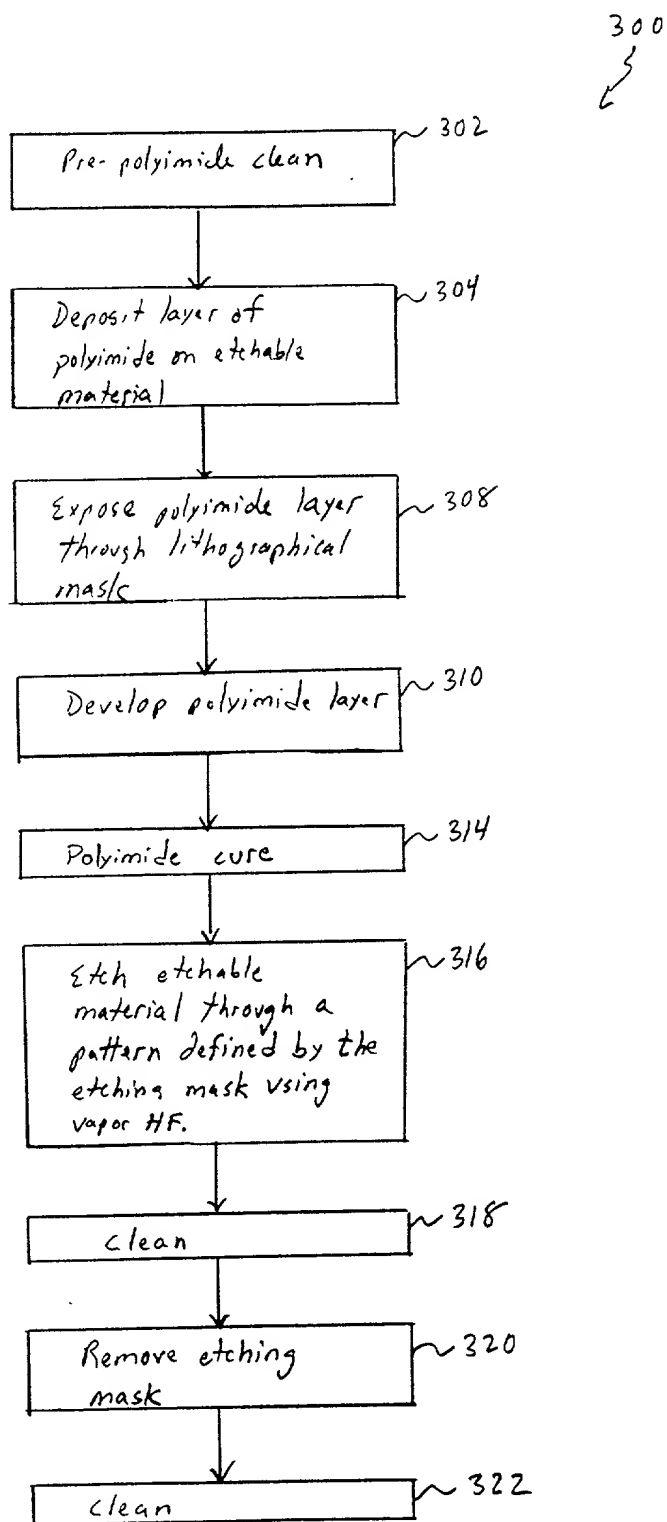 300
302
Pre-polyimide clean
304
Deposit layer of
polyimide on etchable
material
308
Expose polyimide layer
through lithographical
mask
310
Develop polyimide layer
314
Polyimide cure
316
Etch etchable
material through a
pattern defined by the
etching mask using
vapor HF.
318
clean
320
Remove etching
mask
322
clean